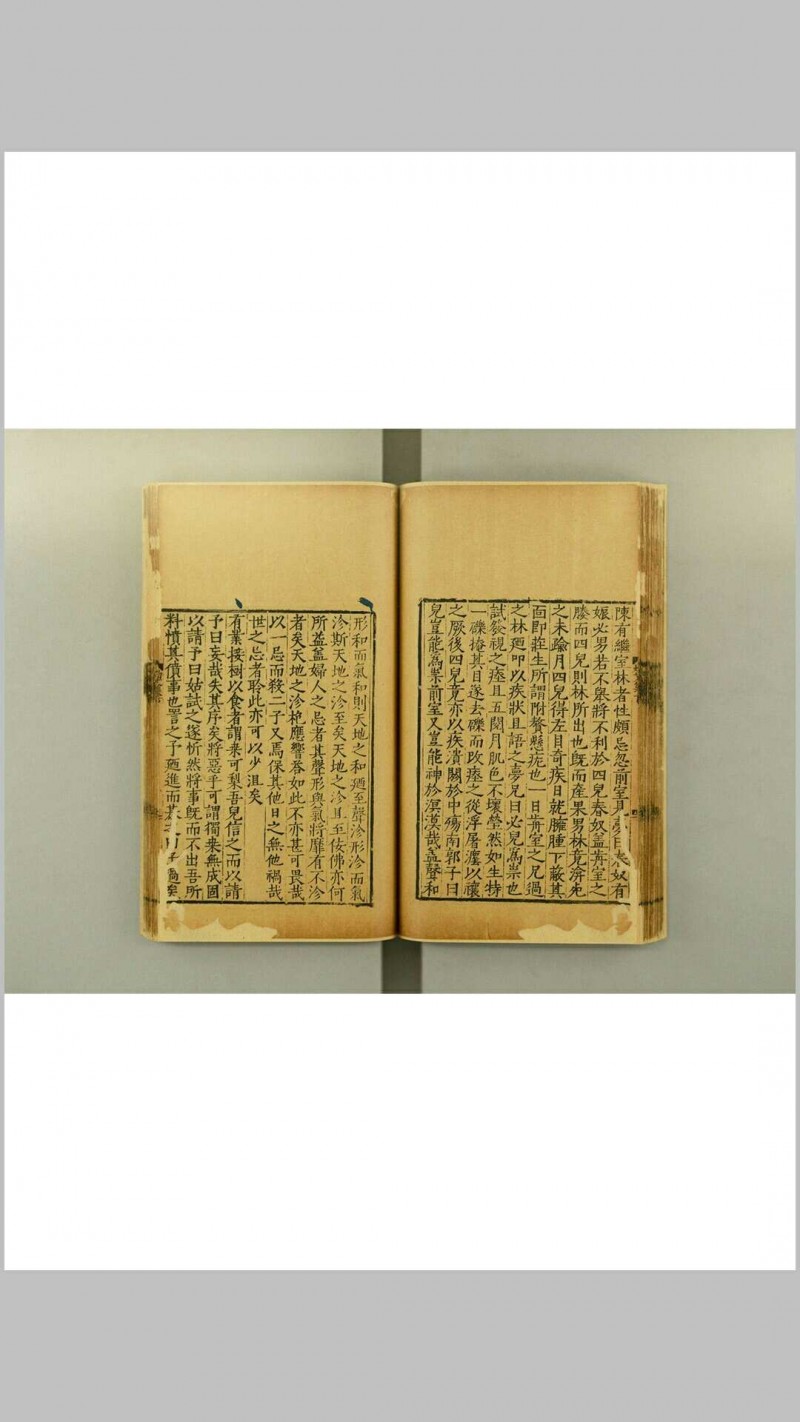 陳有繼室林者性頗忌忽前室見夢曰春奴有
娠必男若不舉將不利於四兒春奴蓋前室之
媵而四兒則林所出也既而產果男林竟溺
之未踰月四兒得左目奇疾日就臃腫下蔽其
面即莊生所謂附贅懸疣也一日前室之兄過
之林廼叩以疾狀且語之夢兄曰必兒為祟也
試發視之瘞且五閱月肌色不壞瑩然如生特
一礫掩其目遂去礫而改瘞之從浮屠瀍以禳
之厥後四兒竟亦以疾潰關於中殤南郭子曰
兒豈能為祟前室又豈能神於溟漠哉蓋聲和
形和而氣和則天地之和廼至聲沴形沴而氣
沴斯天地之沴至矣天地之沴且至佞佛亦何
所益蓋婦人之忌者其聲形與氣將靡有不沴
者矣天地之沴桴應響答如此不亦甚可畏哉
以一忌而殺二子又焉保其他日之無他禍哉
世之忌者聆此亦可以少沮矣
有業接樹以食者謂棗可梨吾兒信之而以請
予曰妄哉失其序矣將惡乎可謂獨棗無成固
以請予曰姑試之遂忻然將事既而不出吾所
料憤其僨事也詈之予廼進而